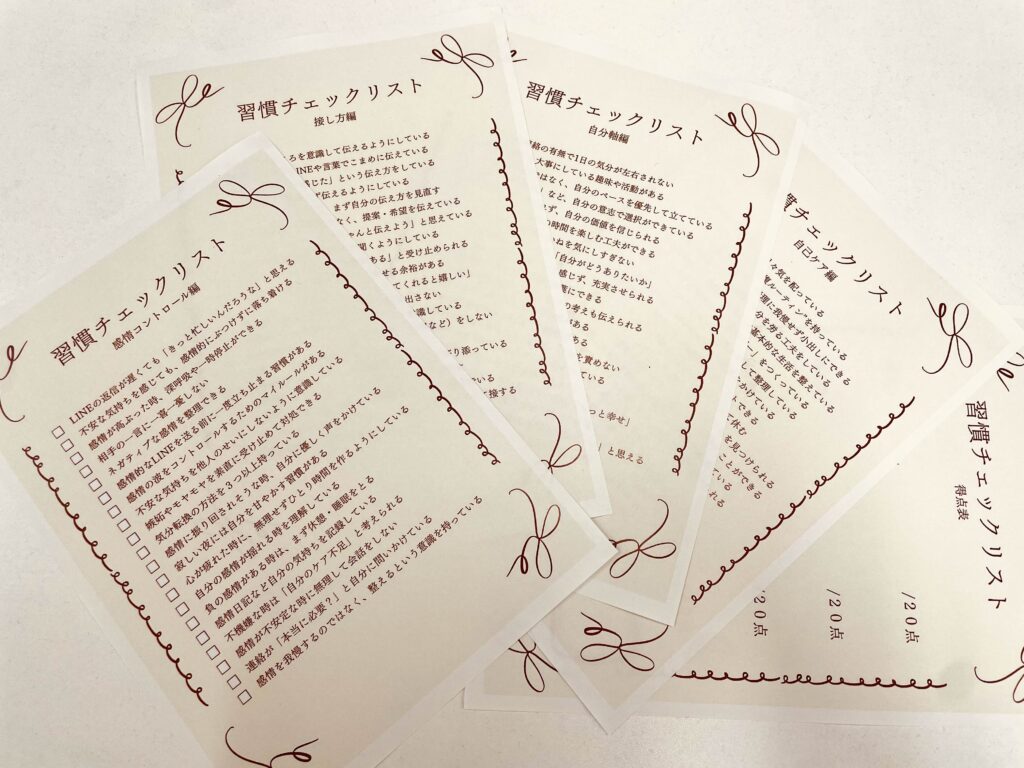 習慣チェックリスト
感情コントロール編
LINEの返信が遅くても「きっと忙しいんだろうな」と思える
不安な気持ちを感じても、感情的にぶつけずに落ち着ける
感情が高ぶった時、深呼吸や一時停止ができる
相手の一言に一喜一憂しない
ネガティブな感情を整理できる
感情的なLINEを送る前に一度立ち止まる習慣がある
感情の波をコントロールするためのマイルールがある
不安な気持ちを他人のせいにしないように意識している
嫉妬やモヤモヤを素直に受け止めて対処できる
気分転換の方法を3つ以上持っている
感情に振り回されそうな時、自分に優しく声をかけている
寂しい夜には自分を甘やかす習慣がある
心が疲れた時に、無理せずひとり時間を作るようにしている
自分の感情が揺れる時を理解している
負の感情がある時は、まず休憩・睡眠をとる
感情日記など自分の気持ちを記録している
不機嫌な時は「自分のケア不足」と考えられる
感情が不安定な時に無理して会話をしない
連絡が「本当に必要?」と自分に問いかけている
感情を我慢するのではなく、整えるという意識を持っている
習慣チェックリスト
接し方編
ろを意識して伝えるようにしている
INEや言葉でこまめに伝えている
じた」という伝え方をしている
ず伝えるようにしている
まず自分の伝え方を見直す
なく、提案・希望を伝えている
ゃんと伝えよう」と思えている
聞くようにしている
ある」と受け止められる
せる余裕がある
てくれると嬉しい」
出さない
識している
など）をしない
り添っている
いる
接する
習慣チェックリスト
自分軸編
絡の有無で1日の気分が左右されない
大事にしている趣味や活動がある
はなく、自分のペースを優先して立てている
」など、自分の意志で選択ができている
ず、自分の価値を信じられる
の時間を楽しむ工夫ができる
ねを気にしすぎない
「自分がどうありたいか」
感じず、充実させられる
にできる
の考えも伝えられる
がある
ある
を責めない
ている
っと幸せ」
」と思える
習慣チェックリスト
自己ケア編
気を配っている
ルーティン"を持っている
理に我慢せず小出しにできる
分を労る工夫をしている
基本的な生活を整えている
をつくっている
して整理している
かけている
できる
休む
を見つけられる
ことができる
いる
れる
習慣チェックリスト
得点表
/20点
/20点
/20点